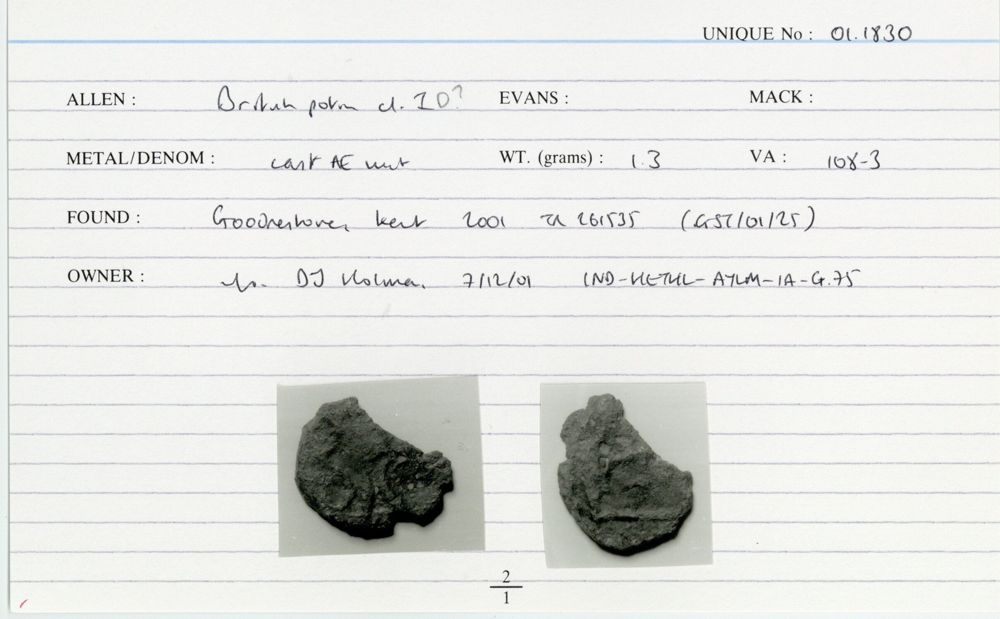 UNIQUE No : 01.1830
ALLEN : British potin cl. I D? EVANS : MACK :
METAL/DENOM : cast AE unit WT. (grams) : 1.3 VA : 108-3
FOUND : Goodnestone, Kent 2001 TR 261535 (GST/01/25)
OWNER : DJ Holman 7/12/01 IND-METHL-AYLM-IA-G.75
2
1